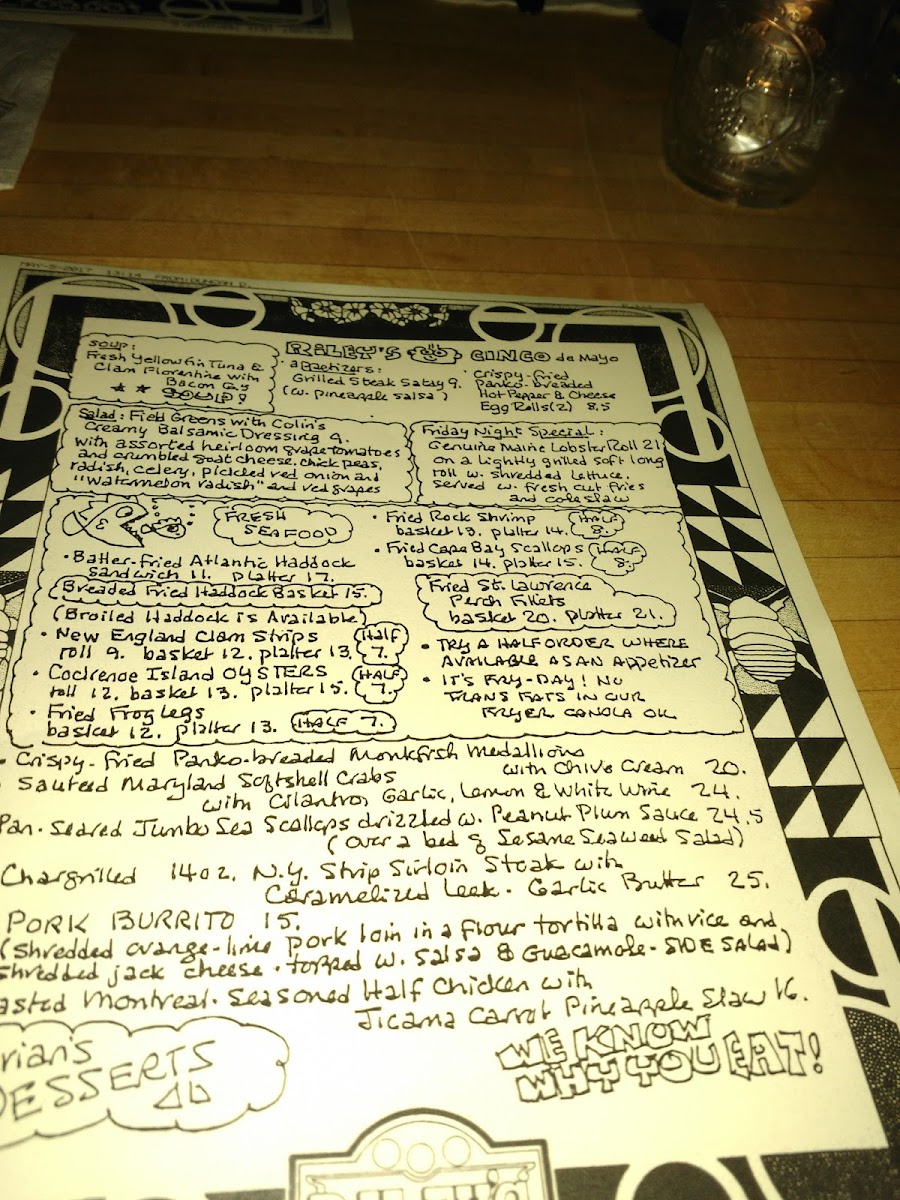 MAY-5-2017 13:14 FROM:DUNCAN D.
RILEY'S CINCO de Mayo
SOUP:
Fresh Yellowfin Tuna &
Clam Florentine with
Bacon
SOUP!
appetizers:
Grilled Steak Satay 9.
(w. pineapple salsa)
Crispy-fried
Panko-breaded
Hot Pepper & Cheese
Egg Rolls (2) 8.5
Salad: Field Greens with Colin's
Creamy Balsamic Dressing 9.
with assorted heirloom grape tomatoes
and crumbled goat cheese, chick peas,
radish, celery, pickled red onion and
"Watermelon radish" and red grapes
Friday Night Special:
Genuine Maine Lobster Roll 21
on a lightly grilled soft long
roll w. shredded lettuce.
Served w. fresh cut fries
and cole slaw
FRESH
SEAFOOD
• Batter-Fried Atlantic Haddock
sandwich 11. platter 17.
Breaded Fried Haddock Basket 15.
(Broiled Haddock is Available)
• New England Clam Strips
roll 9. basket 12. platter 13. Half 7.
• Cockenoe Island OYSTERS
roll 12. basket 13. platter 15. HALF 7.
• Fried Frog Legs
basket 12. platter 13. HALF 7.
• Fried Rock Shrimp
basket 13. platter 14. HALF 8.
• Fried Cape Bay Scallops
basket 14. platter 15. Half 8.
Fried St. Lawrence
Perch Fillets
basket 20. platter 21.
• TRY A HALF ORDER WHERE
AVAILABLE AS AN APPETIZER
• IT'S FRY-DAY! NO
TRANS FATS IN OUR
FRYER CANOLA OIL
• Crispy-Fried Panko-breaded Monkfish Medallions
with Chive Cream 20.
Sauteed Maryland Softshell Crabs
with Cilantro, Garlic, Lemon & White Wine 24.
Pan-Seared Jumbo Sea Scallops drizzled w. Peanut Plum Sauce 24.5
(over a bed of Sesame Seaweed Salad)
Chargrilled 14oz. N.Y. Strip Sirloin Steak with
Caramelized Leek-Garlic Butter 25.
PORK BURRITO 15.
(Shredded orange-lime pork loin in a flour tortilla with rice and
shredded jack cheese • topped w. salsa & Guacamole - SIDE SALAD)
Montreal-Seasoned Half Chicken with
Jicama Carrot Pineapple Slaw 16.
DESSERTS
WE KNOW
WHY YOU EAT!